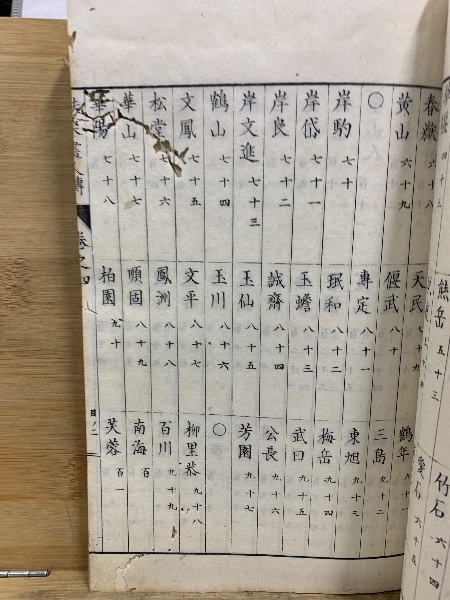 春嶽 六十八
黄山 六十九
〇
岸駒 七十
岸岱 七十一
岸良 七十二
岸文進 七十三
鶴山 七十四
文鳳 七十五
松堂 七十六
華山 七十七
華陽 七十八
天民 七十九
偃武 八十
專定 八十一
珉和 八十二
玉蟾 八十三
誠齋 八十四
玉仙 八十五
玉川 八十六
文平 八十七
鳳洲 八十八
順固 八十九
柏園 九十
鶴年 九十一
三島 九十二
東旭 九十三
梅岳 九十四
武曰 九十五
公長 九十六
芳園 九十七
〇
柳里恭 九十八
百川 九十九
南海 百
芙蓉 百一
卷之四
目ノ二
熊岳 五十三
竹石 六十四
六十五